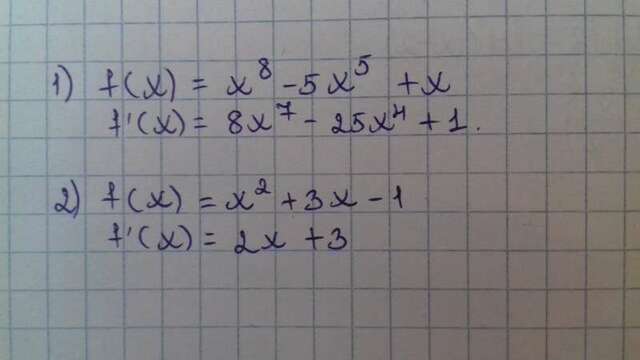 1) f(x) = x⁸ - 5x⁵ + x
f'(x) = 8x⁷ - 25x⁴ + 1.
2) f(x) = x² + 3x - 1
f'(x) = 2x + 3